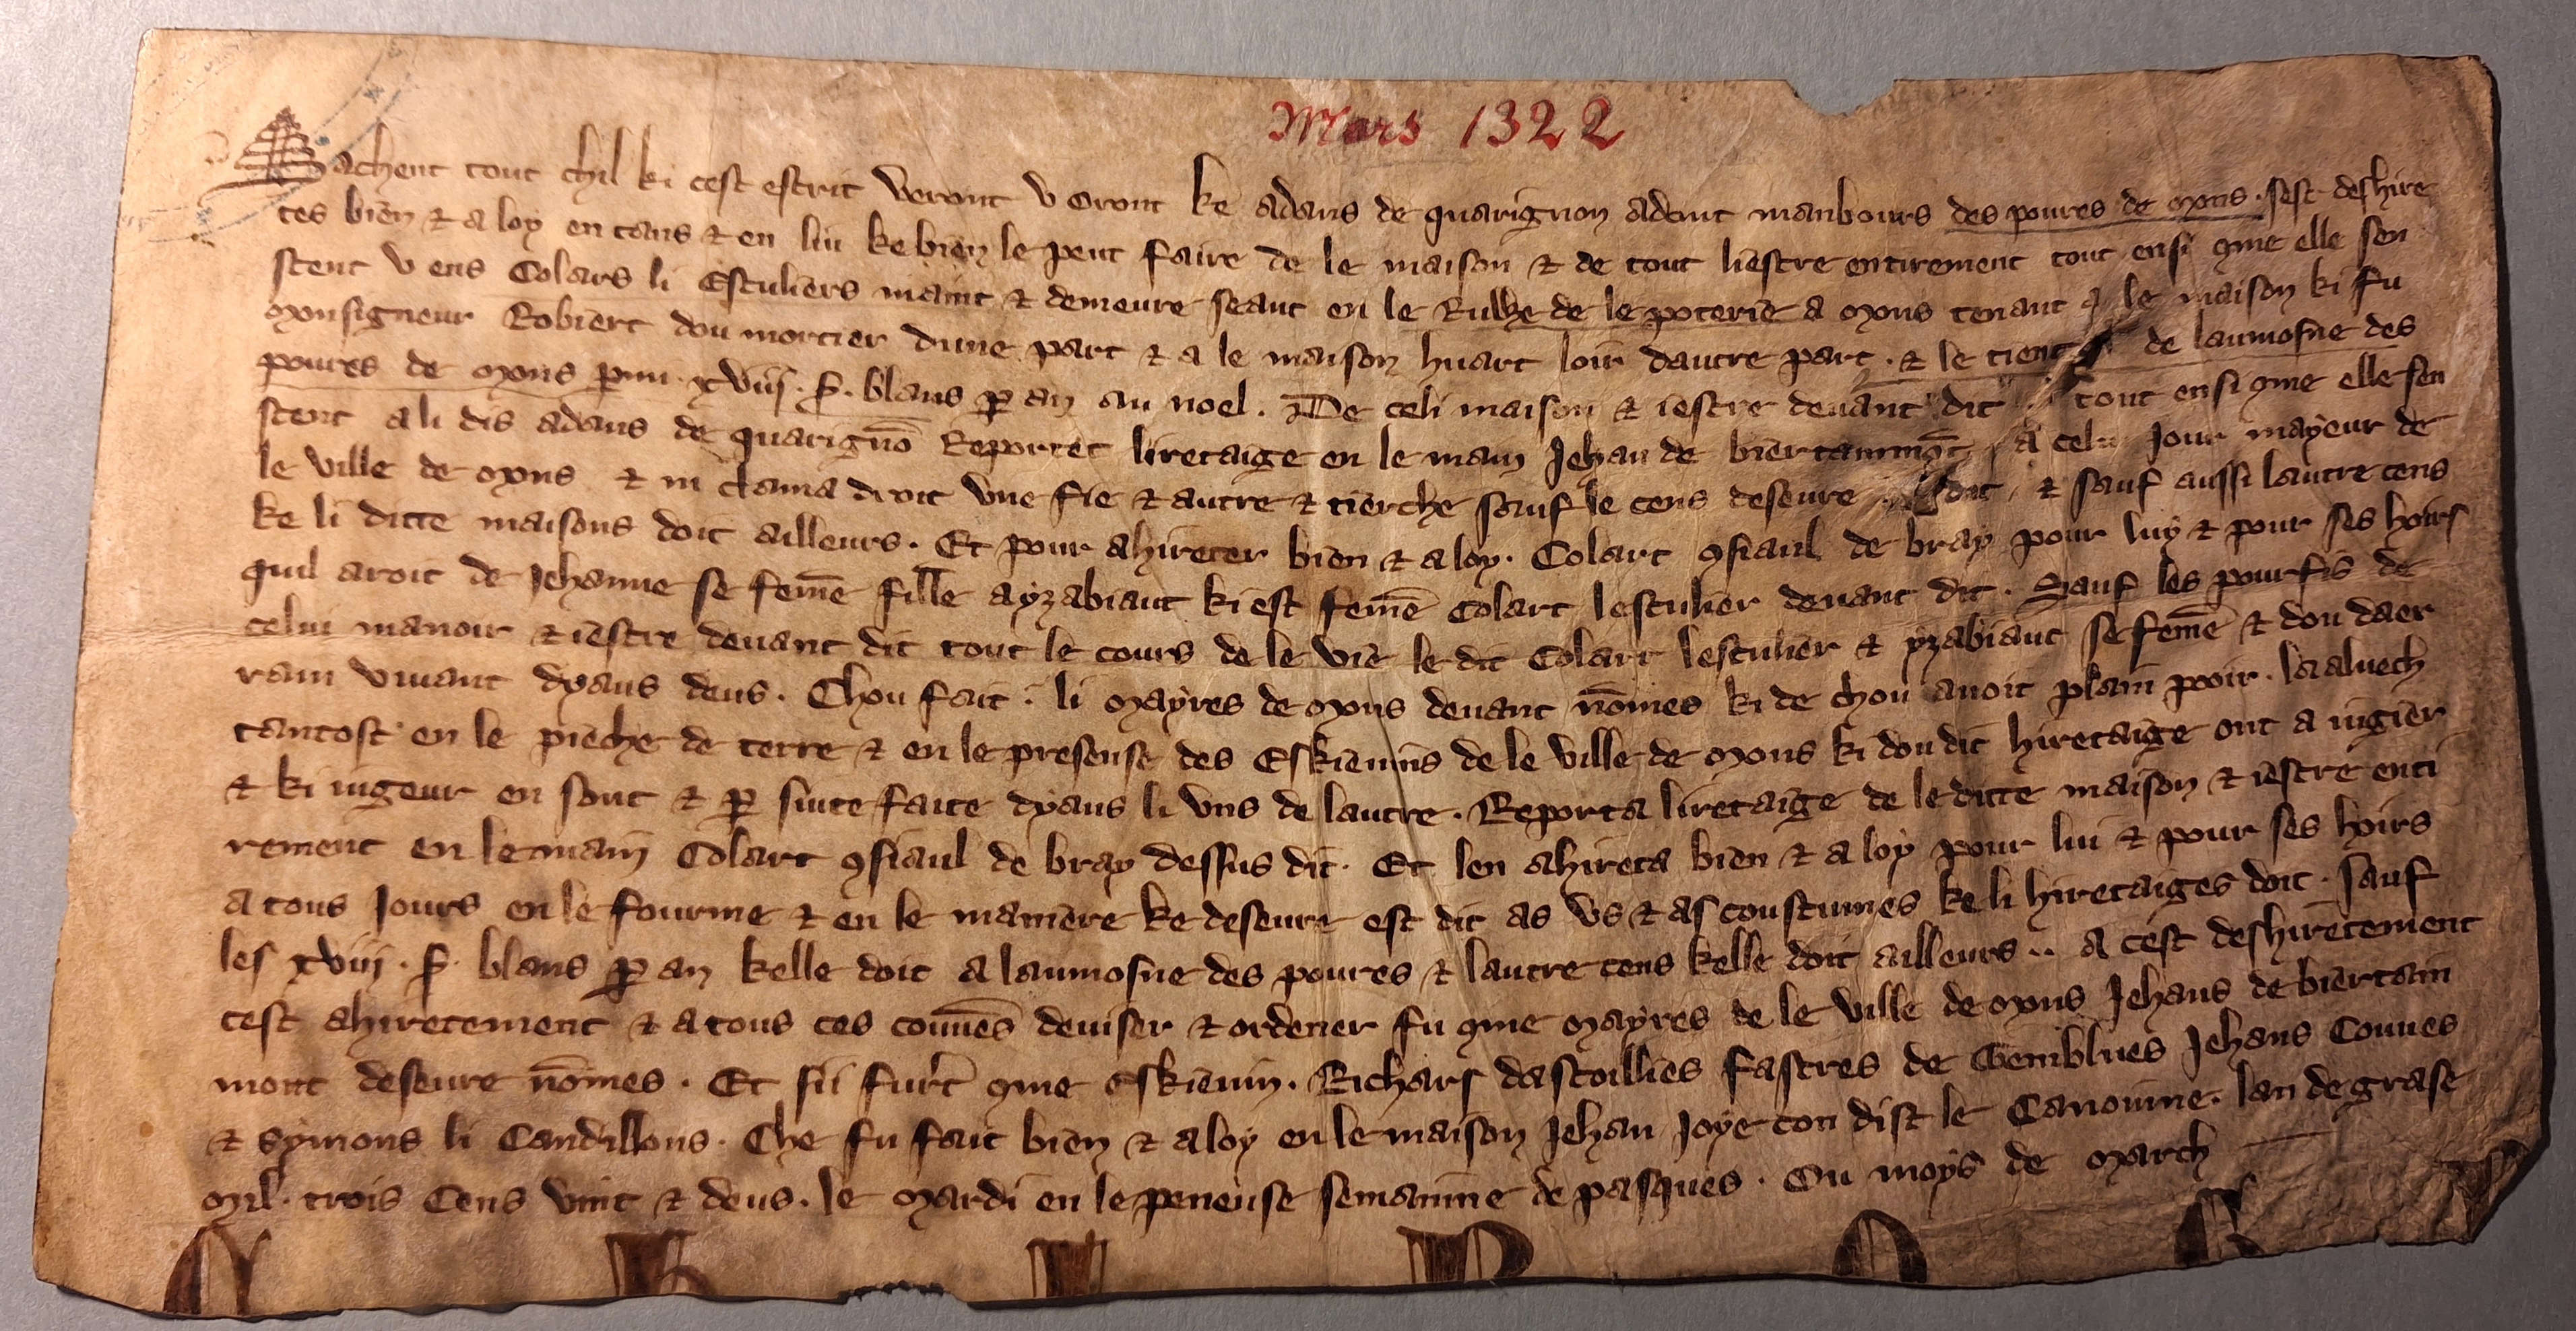 Mars 1322
Sachent tout chil ki cest escrit veront v oront ke adans de quarignon adont manbours des poures de mons . sest deshire
tes bien & a loy en tans & en liu ke bien le peut faire de le maison & de tout liestre entirement tout ensi 9me elle sen
stent v ens Colars li Escuhiers maint & demeure seant en le Ruwe de le poterie a mons tenant a le maison ki fu
monsigneur Robiert dou mortier dune part & a le maison huart loir dautre part . & le tient de laumosne des
poures de mons pmi . xviij . s . blans p an au noel . De celi maison & iestre deuant dit tout ensi 9me elle sen
stent a li dis adans de quarignō Reportet liretaige en le main Jehan de biertaimmōt a celui jour mayeur de
le ville de mons & ni clama droit vne fie & autre & tierche sauf le cens deseure dit , & sauf aussi lautre cens
ke li ditte maisons doit ailleurs . Et pour ahireter bien & a loy . Colart 9siaul de bray pour luy & pour ses hoirs
quil aroit de Jehanne se femē fille a yzabiaut ki est femē Colart lescuhier deuant dit . Sauf les pourfis de
celui manoir & iestre deuant dit tout le cours de le vie le dit Colart lescuhier & yzabiaut se femē & dou daer
rain viuant dyaus deus . Chou fait . li mayres de mons deuant nōmes ki de chou auoit plain pooir . la aluech
tantost en le pieche de terre & en le presense des Eskieuins de le ville de mons ki dou dit hiretaige ont a iugier
& ki iugeur en sont & p siute faite dyaus li vns de lautre . Reporta liretaige de le ditte maison & iestre enti
rement en le main Colart 9siaul de bray dessus dit . Et len ahireta bien & a loy pour lui & pour ses hoirs
a tous jours en le fourme & en le maniere ke deseure est dit as vs & as coustumes ke li hiretaiges doit . sauf
les xviij . s . blans p an kelle doit a laumosne des poures & lautre cens kelle doit ailleurs .. a cest deshiretement
cest ahiretement & a tous ces couuēs deuiser & ordener fu 9me mayres de le ville de mons Jehans de biertain
mont deseure nōmes . Et sii furt 9me eskieuin . Richars dascoillies fastres de Gemblues Jehans Couues
& symons li Candillons . Che fu fait bien & a loy en le maison Jehan joye con dist le Canoinne . lan de grase
mil . trois Cens vint & deus . le mardi en le peneuse semainne de pasques . Ou moys de march